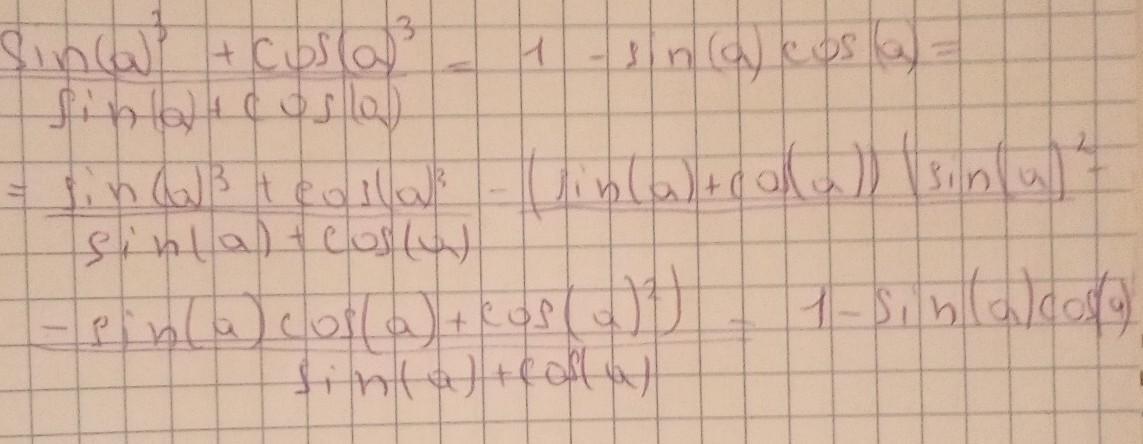 sin(a)³ + cos(a)³ = 1 - sin(a) cos(a) =
sin(a) + cos(a)
= sin(a)³ + cos(a)³ = (sin(a) + cos(a)) (sin(a)² -
sin(a) + cos(a)
- sin(a) cos(a) + cos(a)²) = 1 - sin(a) cos(a)
sin(a) + cos(a)